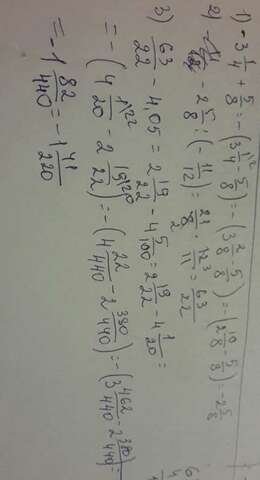 1) -3 1/4 + 5/8 = -(3 1/4 - 5/8) = -(3 2/8 - 5/8) = -(2 10/8 - 5/8) = -2 5/8
2) - 2 5/8 : (- 11/12) = 21/8 · 12/11 = 63/22
3) 63/22 - 4,05 = 2 19/22 - 4 5/100 = 2 19/22 - 4 1/20 =
= -(4 1/20 - 2 19/22) = -(4 22/440 - 2 380/440) = -(3 462/440 - 2 380/440) =
= -1 82/440 = -1 41/220